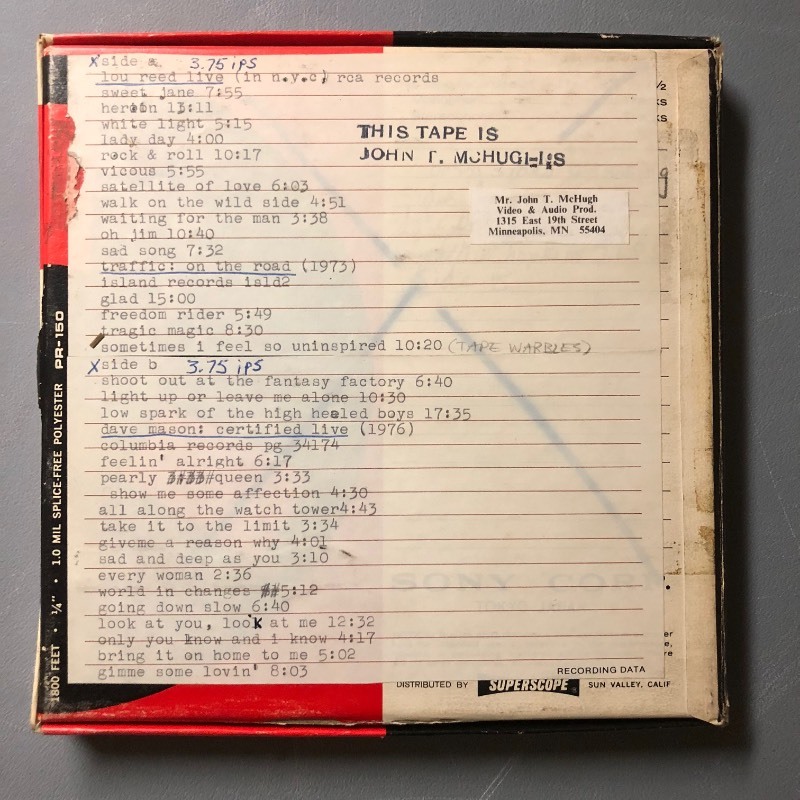 x side a 3.75 ips
lou reed live (in n.y.c) rca records
sweet jane 7:55
heroin 13:11
white light 5:15
lady day 4:00
rock & roll 10:17
vicous 5:55
satellite of love 6:03
walk on the wild side 4:51
waiting for the man 3:38
oh jim 10:40
sad song 7:32
traffic: on the road (1973)
island records isld2
glad 15:00
freedom rider 5:49
tragic magic 8:30
sometimes i feel so uninspired 10:20 (TAPE WARBLES)
x side b 3.75 ips
shoot out at the fantasy factory 6:40
light up or leave me alone 10:30
low spark of the high heeled boys 17:35
dave mason: certified live (1976)
columbia records pg 34174
feelin' alright 6:17
pearly queen 3:33
show me some affection 4:30
all along the watch tower4:43
take it to the limit 3:34
giveme a reason why 4:01
sad and deep as you 3:10
every woman 2:36
world in changes 5:12
going down slow 6:40
look at you, look at me 12:32
only you know and i know 4:17
bring it on home to me 5:02
gimme some lovin' 8:03
THIS TAPE IS
JOHN T. MCHUGH'S
Mr. John T. McHugh
Video & Audio Prod.
1315 East 19th Street
Minneapolis, MN 55404
RECORDING DATA
DISTRIBUTED BY SUPERSCOPE SUN VALLEY, CALIF
SONY CORP
1800 FEET • ¼" • 1.0 MIL SPLICE-FREE POLYESTER PR-150